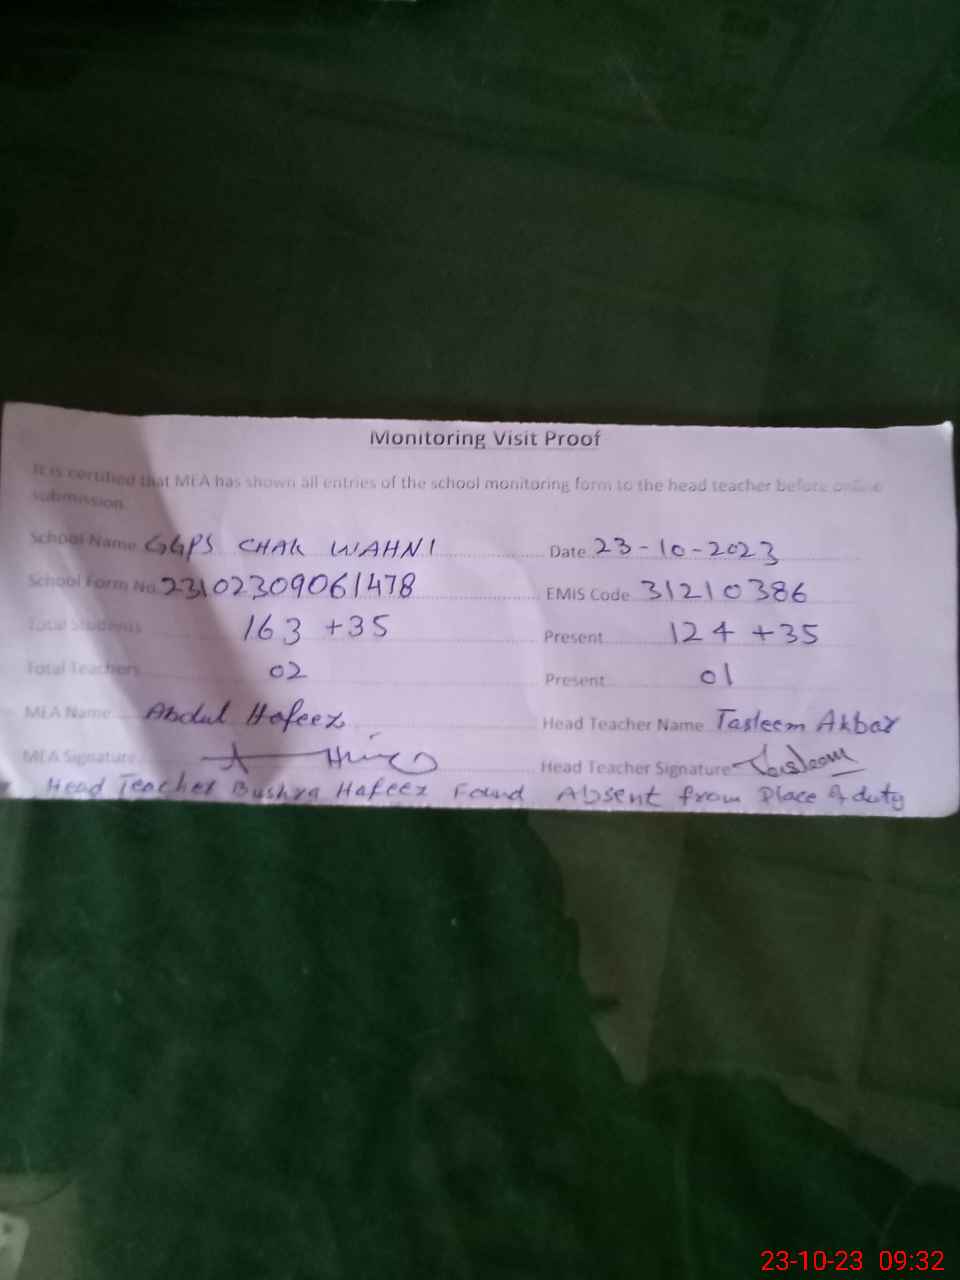 Monitoring Visit Proof
It is certified that MEA has shown all entries of the school monitoring form to the head teacher before online
submission.
School Name GGPS CHAK WAHNI Date 23-10-2023
School Form No 23102309061478 EMIS Code 31210386
Total Students 163 +35 Present 124 +35
Total Teachers 02 Present 01
MEA Name Abdul Hafeez Head Teacher Name Tasleem Akbar
MEA Signature Head Teacher Signature Tasleem
Head Teacher Bushra Hafeez Found Absent from Place of duty
23-10-23 09:32